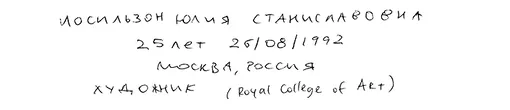 ИОСИЛЬЗОН ЮЛИЯ СТАНИСЛАВОВНА
25 лет 26/08/1992
МОСКВА, РОССИЯ
ХУДОЖНИК (Royal College of Art)